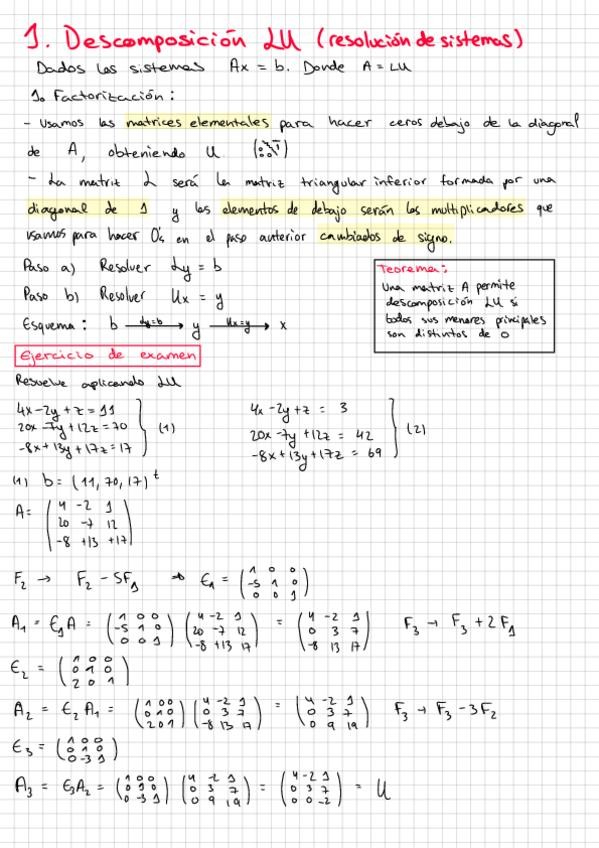 1. Descomposición LU (resolución de sistemas)
Dados los sistemas Ax = b. Donde A = LU
1. Factorización:
- Usamos las matrices elementales para hacer ceros debajo de la diagonal
de A, obteniendo U.
- La matriz L será la matriz triangular inferior formada por una
diagonal de 1 y los elementos de debajo serán los multiplicadores que
usamos para hacer 0's en el paso anterior cambiados de signo.
Paso a) Resolver Ly = b
Paso b) Resolver Ux = y
Esquema: b Ly=b → y Ux=y → x
Teorema:
Una matriz A permite
descomposición LU si
todos sus menores principales
son distintos de 0
Ejercicio de examen
Resuelve aplicando LU
4x-2y+z=11
20x-7y+12z=70 (1)
-8x+13y+17z=17
4x-2y+z = 3
20x-7y+12z = 42 (2)
-8x+13y+17z = 69
(1) b=(11,70,17)^t
A= ( 4 -2 1
20 -7 12
-8 +13 +17 )
F2 → F2 - 5F1 → E1 = ( 1 0 0 / -5 1 0 / 0 0 1 )
A1 = E1A = ( 1 0 0 / -5 1 0 / 0 0 1 ) ( 4 -2 1 / 20 -7 12 / -8 +13 17 ) = ( 4 -2 1 / 0 3 7 / -8 13 17 ) F3 → F3 + 2F1
E2 = ( 1 0 0 / 0 1 0 / 2 0 1 )
A2 = E2A1 = ( 1 0 0 / 0 1 0 / 2 0 1 ) ( 4 -2 1 / 0 3 7 / -8 13 17 ) = ( 4 -2 1 / 0 3 7 / 0 9 19 ) F3 → F3 - 3F2
E3 = ( 1 0 0 / 0 1 0 / 0 -3 1 )
A3 = E3A2 = ( 1 0 0 / 0 1 0 / 0 -3 1 ) ( 4 -2 1 / 0 3 7 / 0 9 19 ) = ( 4 -2 1 / 0 3 7 / 0 0 -2 ) = U